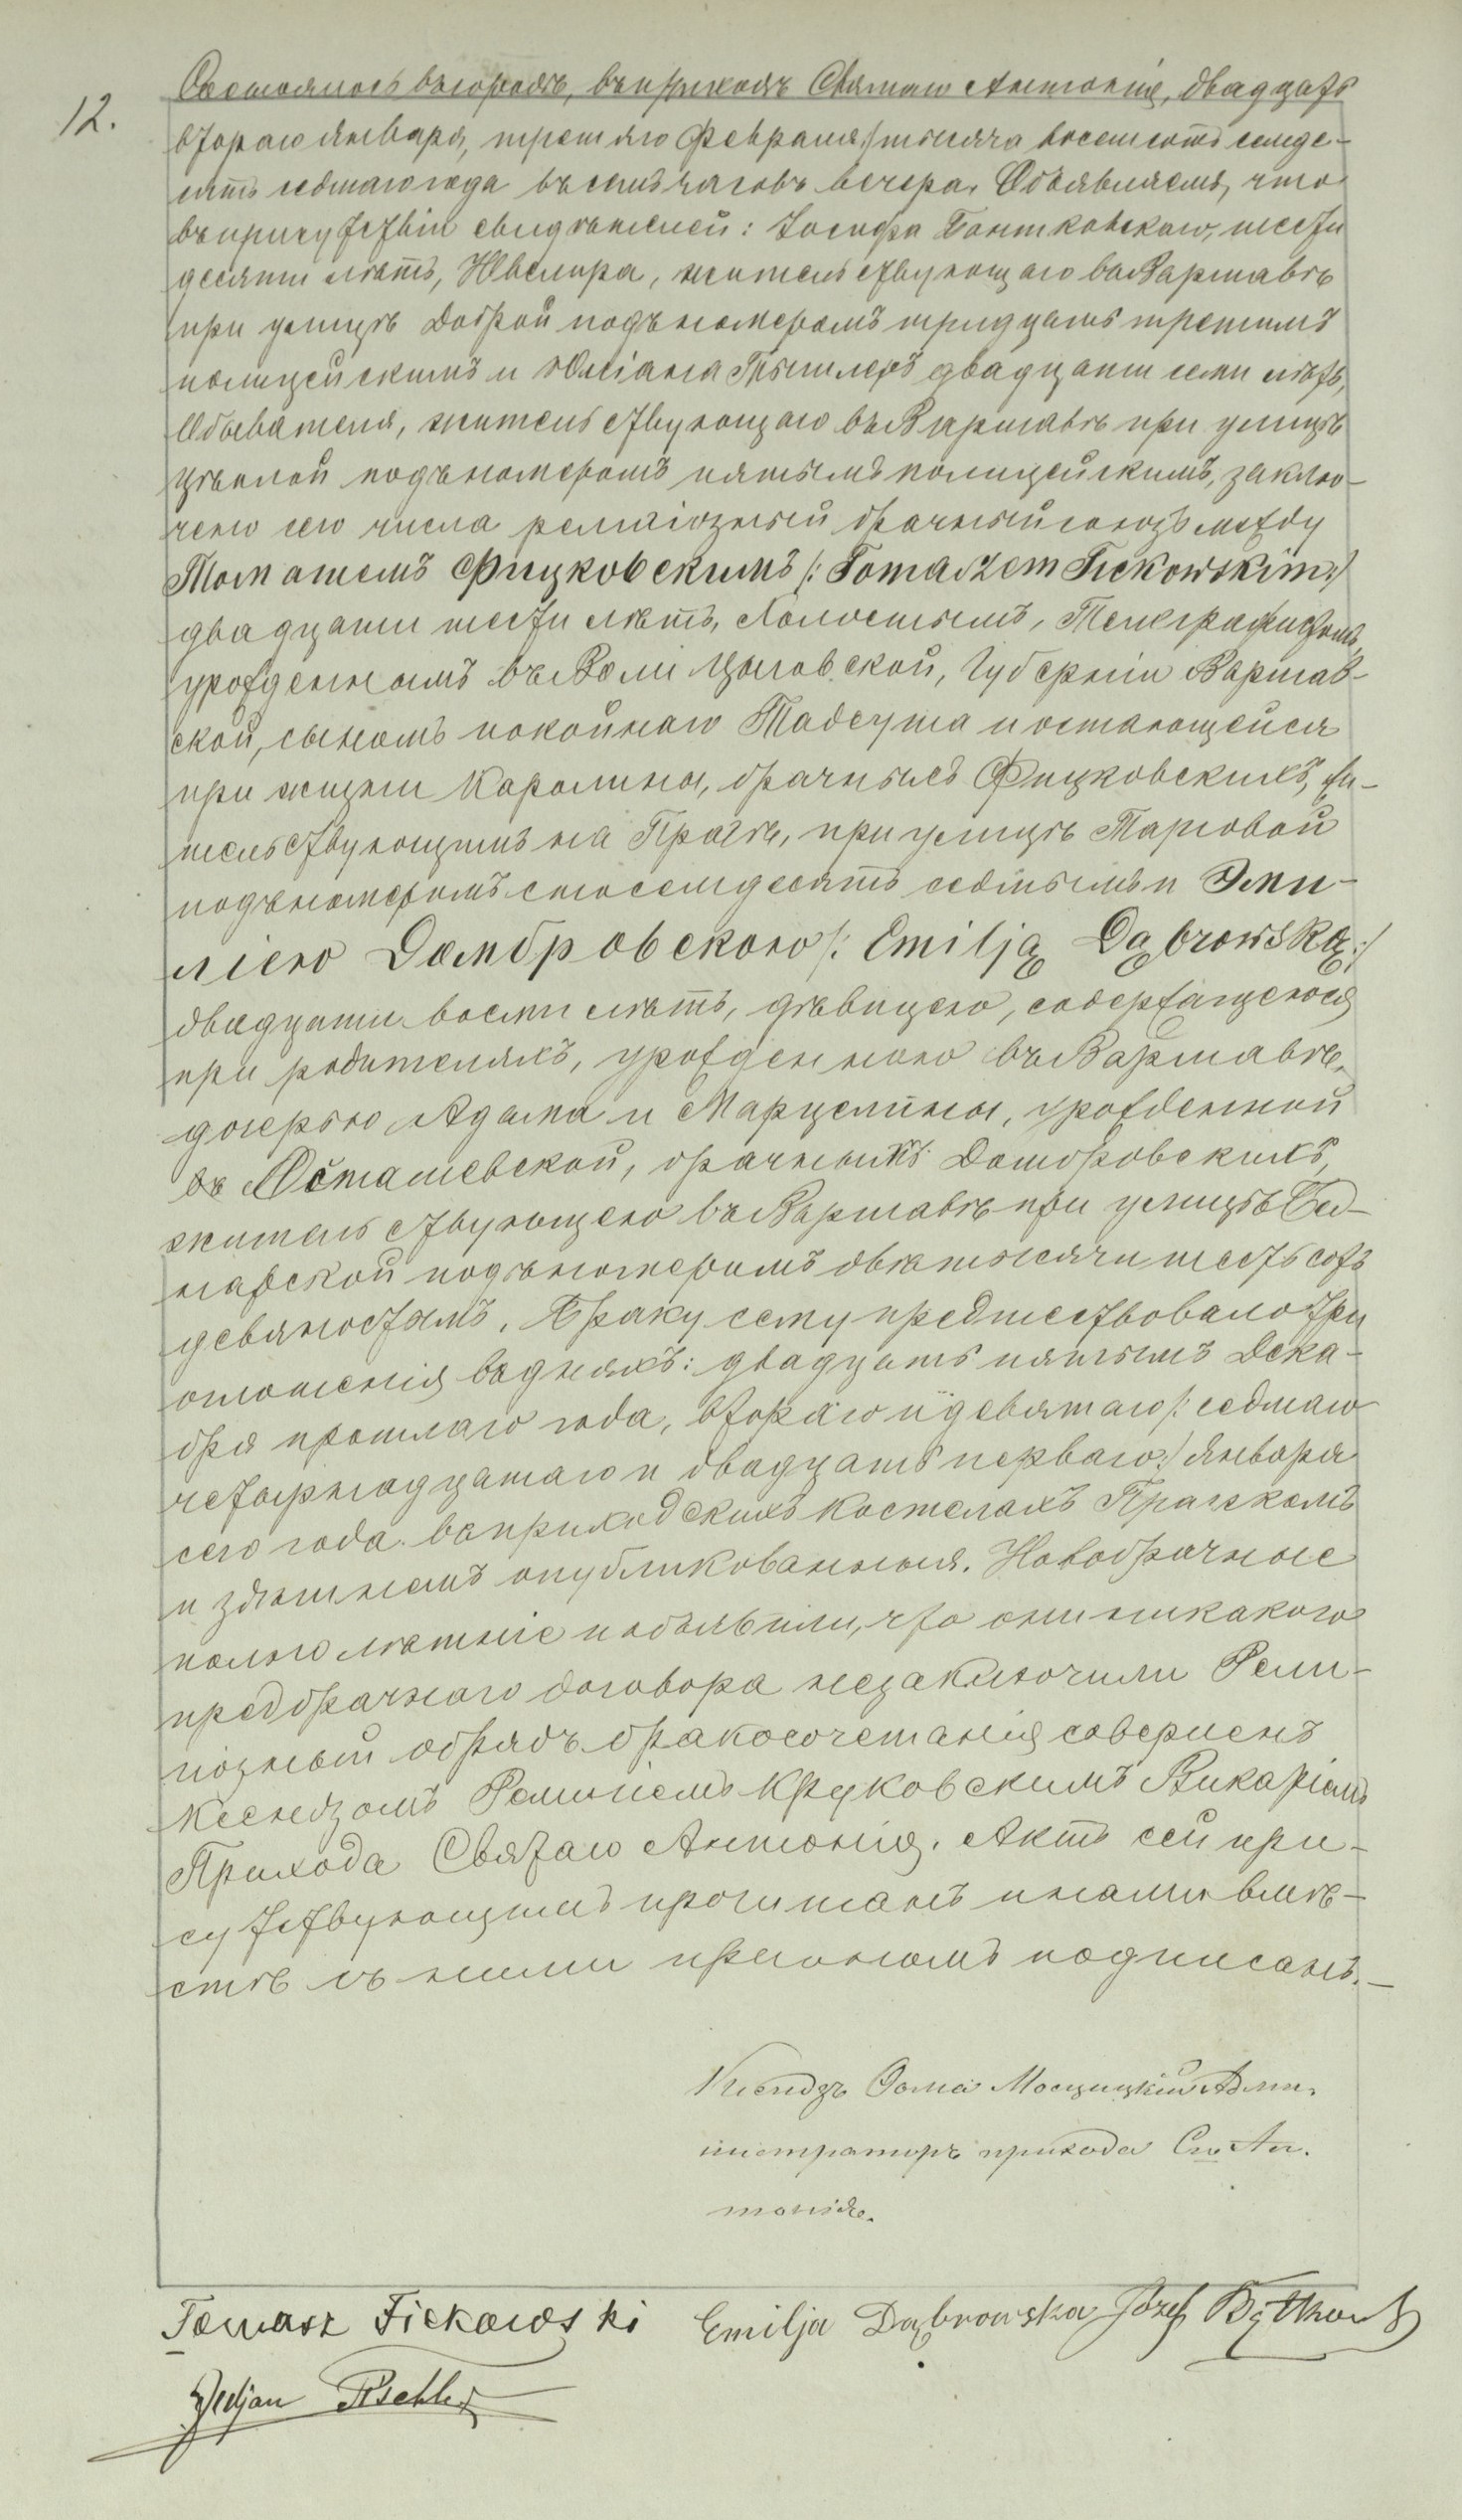 12.
Состоялось въ городѣ, въ приходѣ Святаго Антонія, двадцать
втораго Января, третяго Февраля тысяча восемьсотъ семде-
сятъ седмаго года въ семь часовъ вечера. Объявляемъ, что
въ присутствіи свидѣтелей: Іосифа Бонтковскаго, шести
десяти лѣтъ, Ювелира, жительствующаго въ Варшавѣ
при улицѣ Доброй подъ номеромъ тридцать третимъ
полицейскимъ и Юліана Пшиллеръ двадцати семи лѣтъ,
Обывателя, жительствующаго въ Варшавѣ при улицѣ
Цѣплой подъ номеромъ пятымъ полицейскимъ, заклю-
чено сего числа религіозный брачный союзъ между
Томашемъ Фицковскимъ /: Tomaszem Fickowskim :/
двадцати шести лѣтъ, Холостымъ, Телеграфистомъ,
урожденнымъ въ Воли Цыговской, Губерніи Варшав-
ской, сыномъ покойнаго Тадеуша и остающейся
при жизни Каролины, брачныхъ Фицковскихъ, жи-
тельствующимъ на Прагѣ, при улицѣ Тарговой
подъ номеромъ сто семдесятъ седмымъ и Эми-
ліею Домбровскою /: Emilją Dąbrowską :/
двадцати восми лѣтъ, дѣвицею, содержащеюся
при родителяхъ, урожденною въ Варшавѣ,
дочерью Адама и Марцелины, урожденной
Осташевской, брачныхъ Домбровскихъ,
жительствующею въ Варшавѣ при улицѣ Бед-
нарской подъ номеромъ двѣ тысячи шестьсотъ
девяностымъ. Браку сему предшествовало три
оглошенія въ дняхъ: двадцать пятымъ Дека-
бря прошлаго года, втораго и девятаго /: седмаго
четырнадцатаго и двадцать перваго :/ Января
сего года въ приходскихъ костелахъ Пражскомъ
и здѣшнемъ опубликованныя. Новобрачные
полнолѣтніе и объявили, что они никакого
предбрачнаго договора незаключили Рели-
гіозный обрядъ бракосочетанія совершенъ
Ксендзомъ Ремигіемъ Круковскимъ Викаріемъ
Прихода Святаго Антонія. Актъ сей при-
сутствующимъ прочитанъ и нами вмѣ-
стѣ съ ними подписанъ.—
Ксендзъ Ѳома Мосцицкій Адми-
нистраторъ прихода Св. Ан-
тонія.
Tomasz Fickowski Emilja Dąbrowska Józef Bątkowski
Juljan Pschller